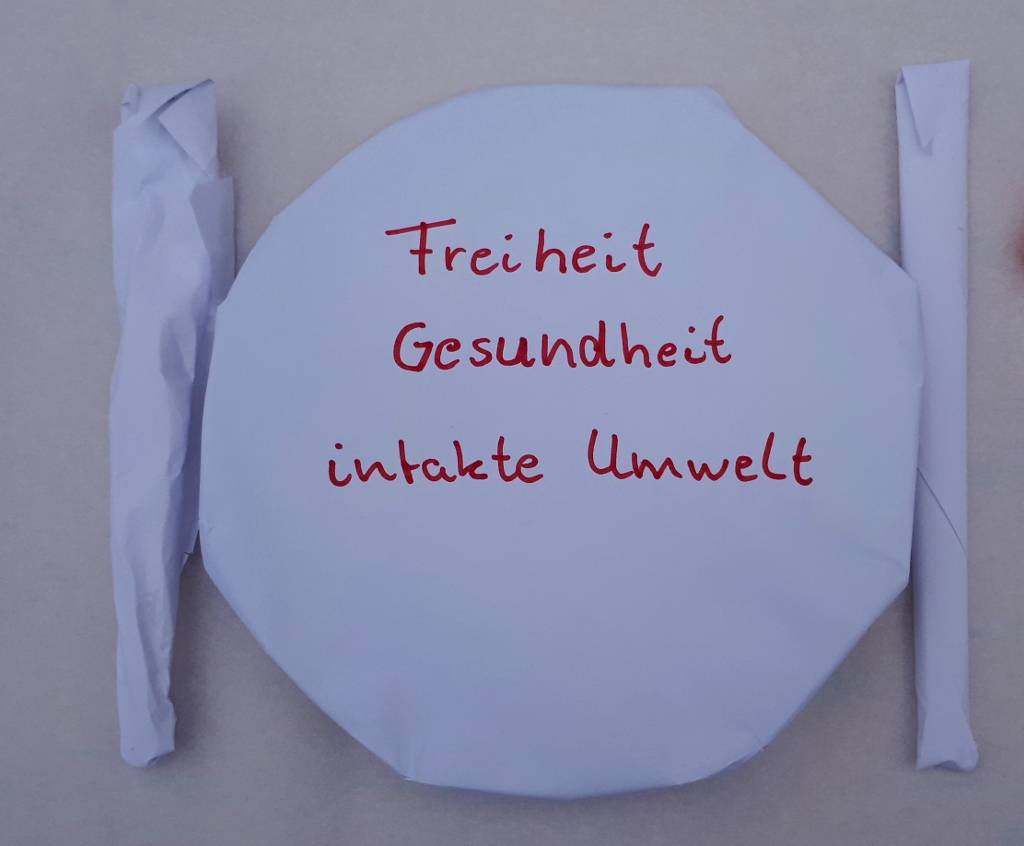 Freiheit
Gesundheit
intakte Umwelt